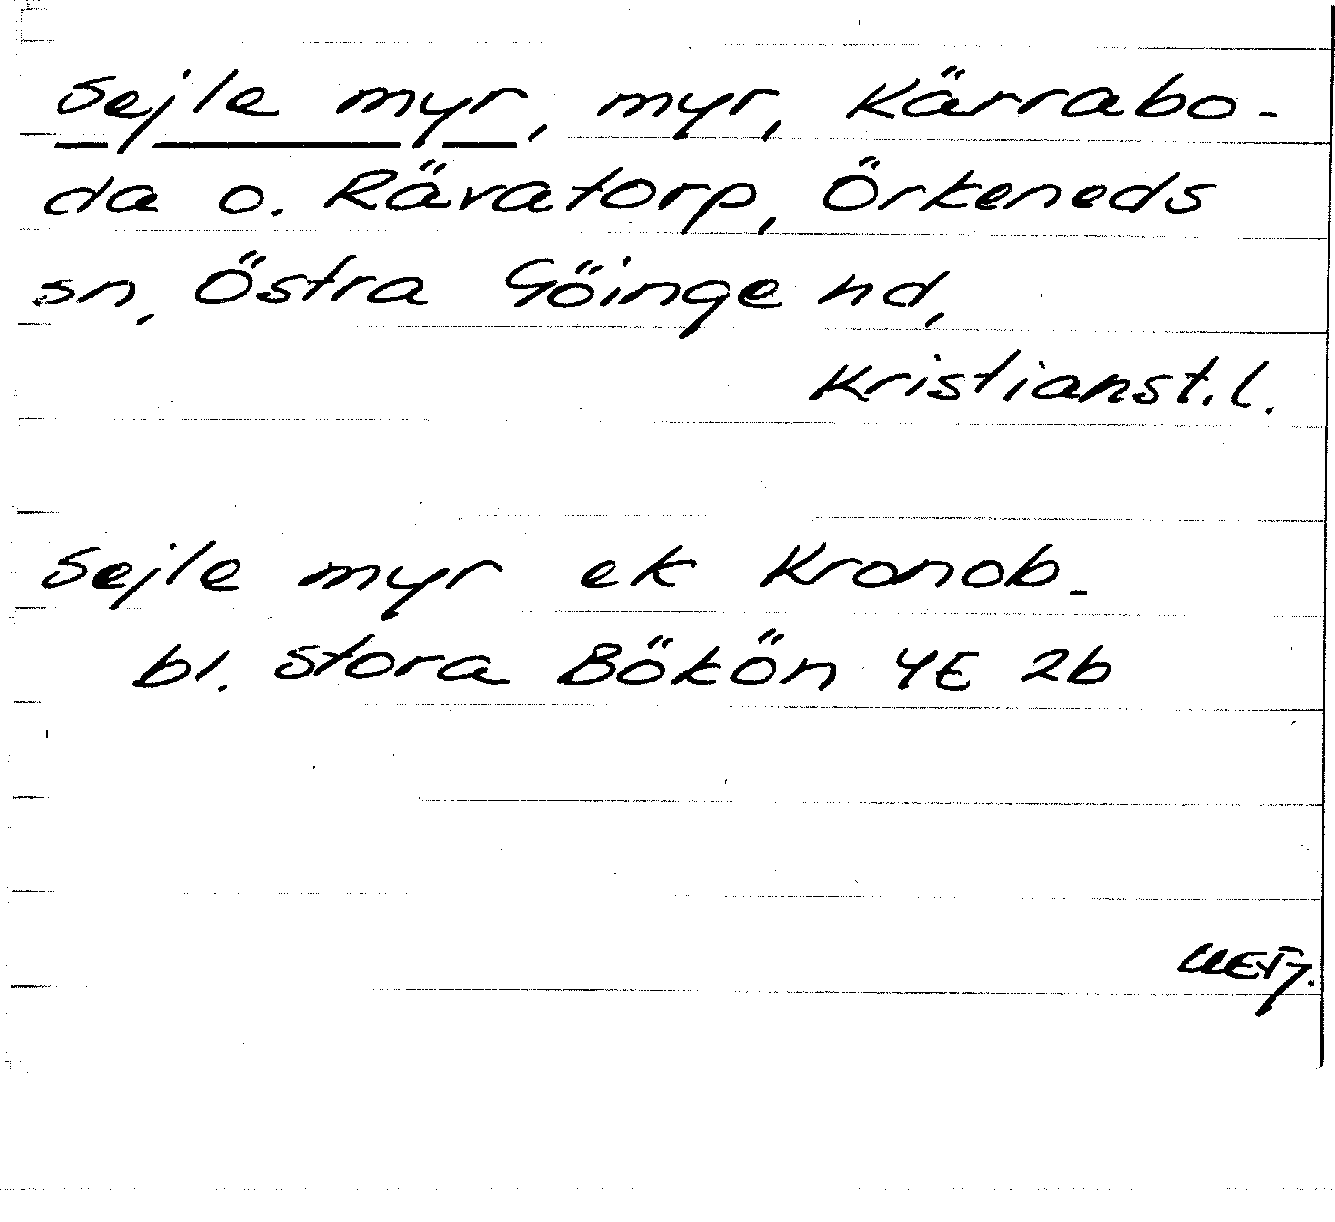 Sejle myr, myr, Kärrabo-
da o. Rävatorp, Örkeneds
sn, Östra Göinge hd,
Kristianst. l.
Sejle myr ek Kronob-
bl. Stora Bökön 4E 2b